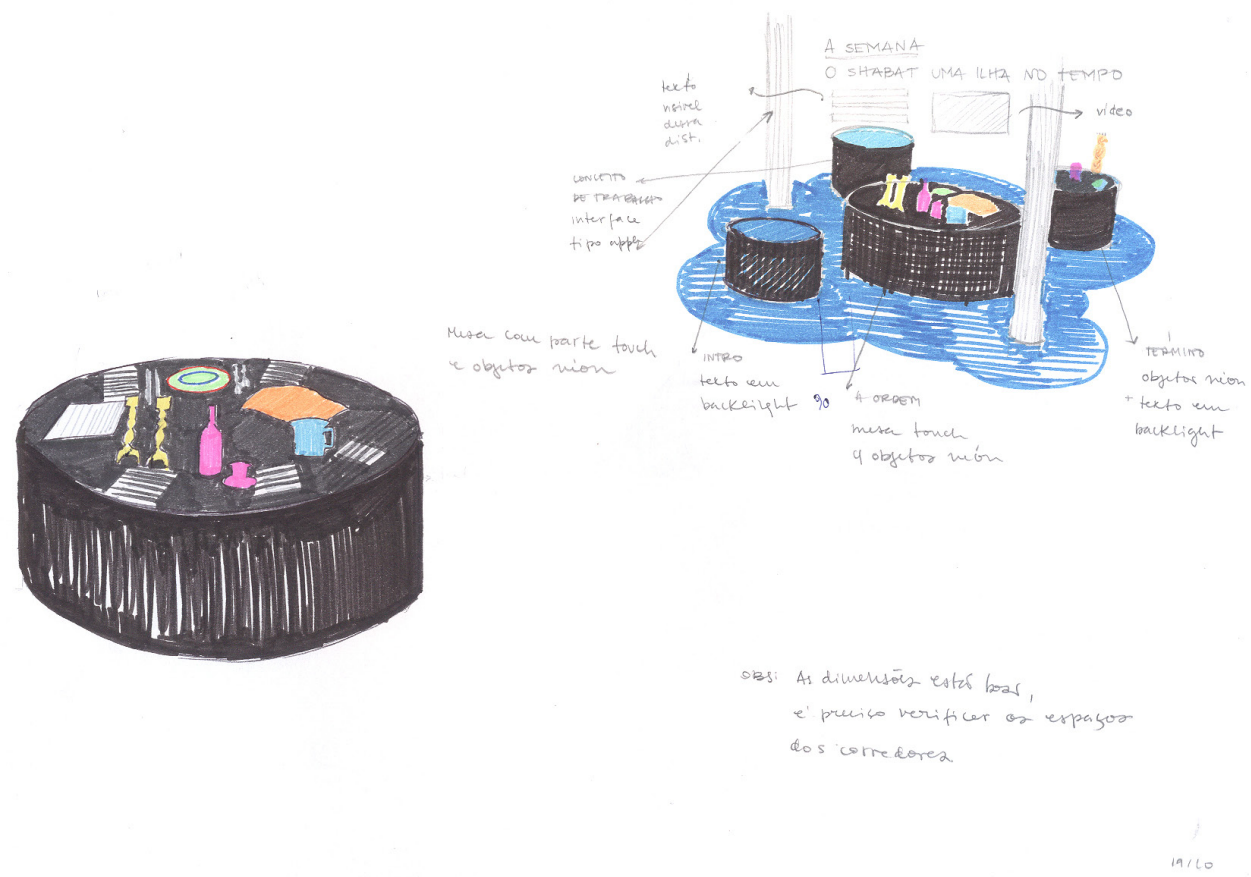 A SEMANA
O SHABAT UMA ILHA NO TEMPO
texto
visivel
dessa
dist.
video
CONCEITO
DE TRABALHO
interface
tipo apple
Mesa com parte touch
e objetos néon
INTRO
texto em
backlight
90
A ORDEM
mesa touch
4 objetos néon
TÉRMINO
objetos néon
+ texto em
backlight
OBS: As dimensões estão boas,
é preciso verificar os espaços
dos corredores
19/10